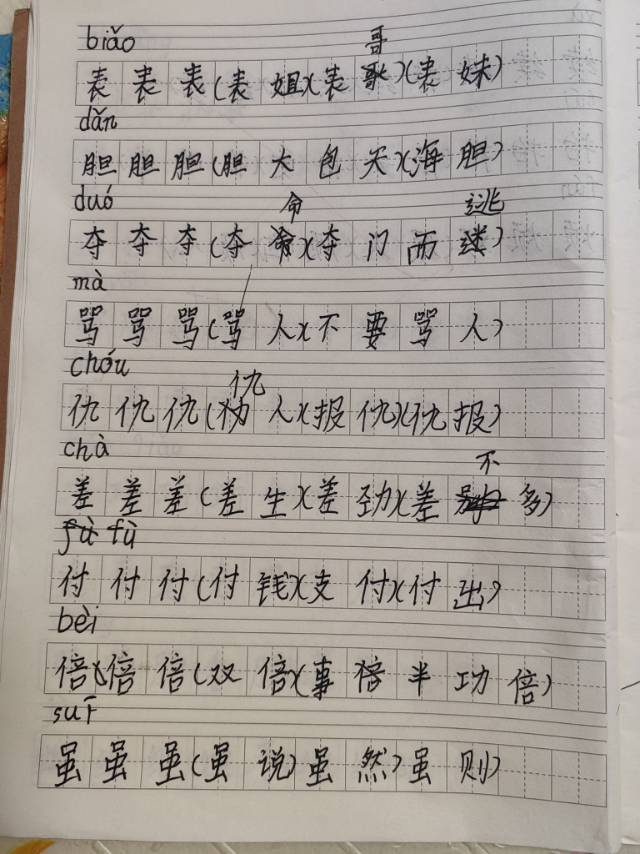 biǎo
哥
表表表(表姐)(表歌)(表妹)
dǎn
胆胆胆(胆大包天)(海胆)
duó
命 逃
夺夺夺(夺命)(夺门而)
mà
骂骂骂(骂人)(不要骂人)
chóu
仇
仇仇仇(人)(报仇)(仇报)
chà
不
差差差(差生)(差劲)(差多)
fù
付付付(付钱)(支付)(付出)
bèi
倍倍倍(双倍)(事倍半功倍)
suī
虽虽虽(虽说)虽然)虽则)